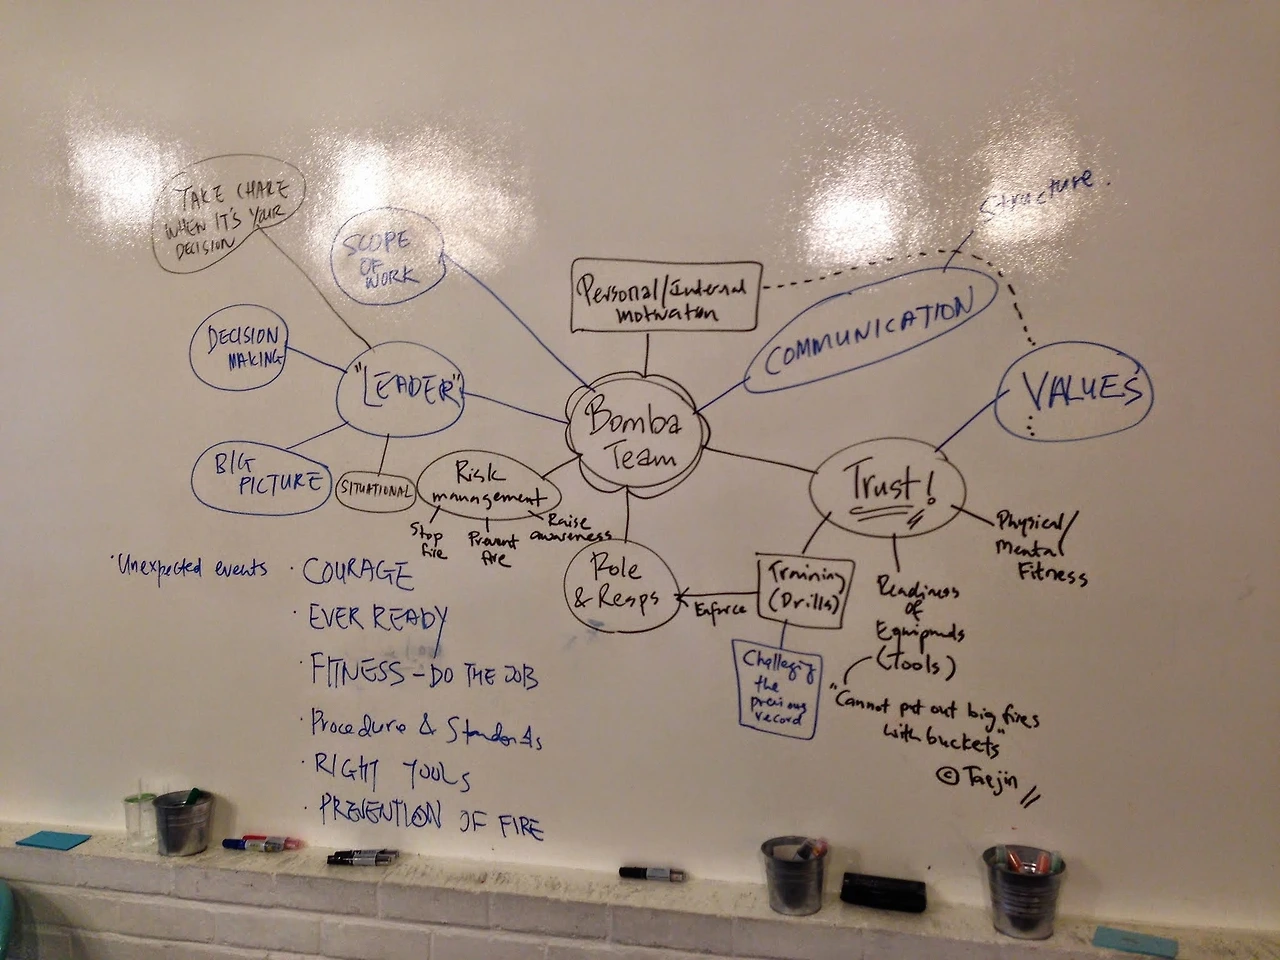 TAKE CHARE
WHEN IT'S YOUR
DECISION
SCOPE
OF
WORK
Personal/Internal
motivation
Structure.
COMMUNICATION
DECISION
MAKING
"LEADER"
Bomba
Team
VALUES
BIG
PICTURE
SITUATIONAL
Risk
management
Stop
fire
Prevent
fire
Raise
awareness
Trust!
Physical/
Mental
Fitness
Role
& Resps
Enforce
Training
(Drills)
Challeging
the
previous
record
Readiness
of
Equipmnds
(Tools)
"Cannot put out big fires
with buckets"
© Taejin
· Unexpected events
· COURAGE
· EVER READY
· FITNESS - DO THE JOB
· Procedure & Standards
· RIGHT TOOLS
· PREVENTION OF FIRE